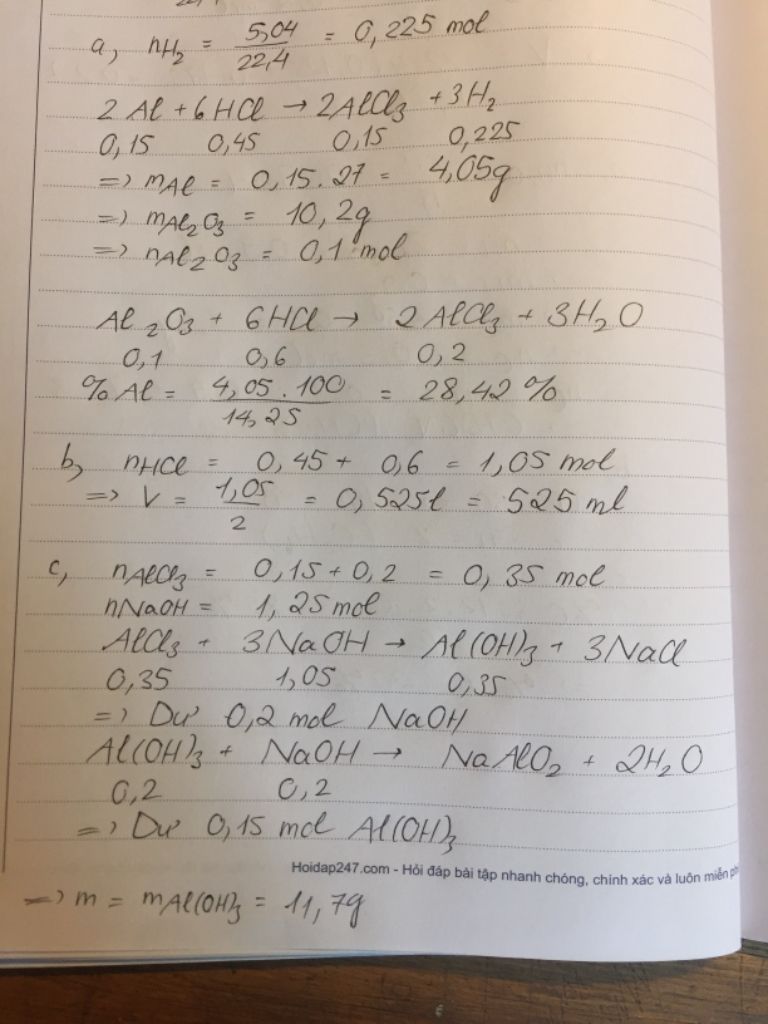 a, nH2 = 5,04 / 22,4 = 0,225 mol
2 Al + 6 HCl → 2AlCl3 + 3H2
0,15 0,45 0,15 0,225
=> mAl = 0,15.27 = 4,05g
=> mAl2O3 = 10,2g
=> nAl2O3 = 0,1 mol
Al2O3 + 6HCl → 2AlCl3 + 3H2O
0,1 0,6 0,2
% Al = 4,05.100 / 14,25 = 28,42 %
b, nHCl = 0,45 + 0,6 = 1,05 mol
=> V = 1,05 / 2 = 0,525l = 525 ml
c, nAlCl3 = 0,15 + 0,2 = 0,35 mol
nNaOH = 1,25 mol
AlCl3 + 3NaOH → Al(OH)3 + 3NaCl
0,35 1,05 0,35
=> Dư 0,2 mol NaOH
Al(OH)3 + NaOH → NaAlO2 + 2H2O
0,2 0,2
=> Dư 0,15 mol Al(OH)3
Hoidap247.com - Hỏi đáp bài tập nhanh chóng, chính xác và luôn miễn
=> m = mAl(OH)3 = 11,7g